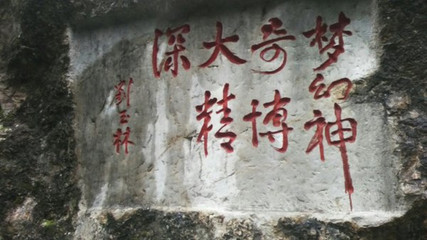 梦幻神
奇博
大精
深
刘玉林